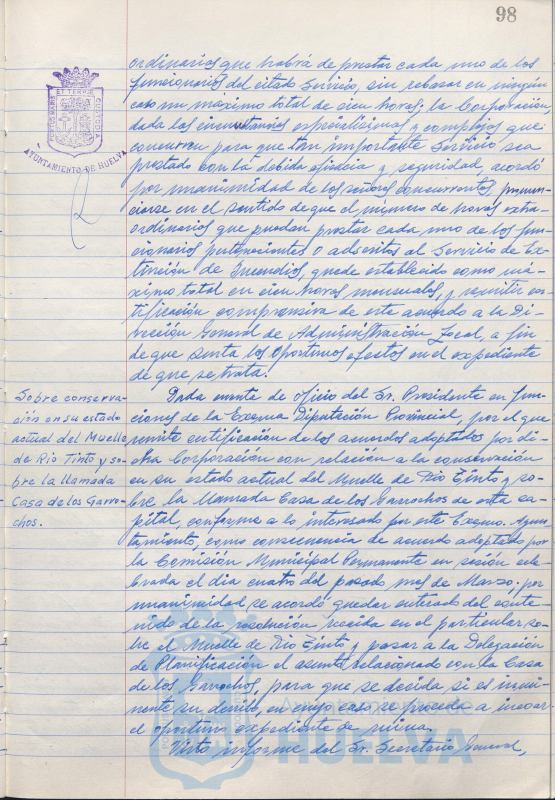 98
ordinarias que habrá de prestar cada uno de los
funcionarios del citado Servicio, sin rebasar en ningún
caso un máximo total de cien horas; la Corporación,
dada las circunstancias especialísimas y complejas que
concurren para que tan importante Servicio sea
prestado con la debida eficacia y seguridad, acordó
por unanimidad de los señores concurrentes, pronun-
ciarse en el sentido de que el número de horas extra-
ordinarias que puedan prestar cada uno de los fun-
cionarios pertenecientes o adscritos al Servicio de Ex-
tinción de Incendios, quede establecido como má-
ximo total en cien horas mensuales, y remitir cer-
tificación comprensiva de este acuerdo a la Di-
rección General de Administración Local, a fin
de que surta los oportunos efectos en el expediente
de que se trata.
AYUNTAMIENTO DE HUELVA
PORTUS MARIS ET TERRAE CUSTODIA
Sobre conserva-
ción en su estado
actual del Muelle
de Rio Tinto y so-
bre la llamada
Casa de los Garro-
chos.
Dada cuenta de oficio del Sr. Presidente en fun-
ciones de la Excma Diputación Provincial, por el que
remite certificación de los acuerdos adoptados por di-
cha Corporación con relación a la conservación
en su estado actual del Muelle de Rio Tinto y so-
bre la llamada Casa de los Garrochos de esta ca-
pital, conforme a lo interesado por este Excmo. Ayun-
tamiento, como consecuencia de acuerdo adoptado por
la Comisión Municipal Permanente en sesión cele-
brada el dia cuatro del pasado mes de Marzo; por
unanimidad se acordó quedar enterado del conte-
nido de la resolución recaida en el particular so-
bre el Muelle de Rio Tinto y pasar a la Delegación
de Planificación el asunto relacionado con la Casa
de los Garrochos, para que se decida, si es inquí-
nente su derribo, en cuyo caso se proceda a incoar
el oportuno expediente de ruina.
Visto informe del Sr. Secretario General,
HUELVA